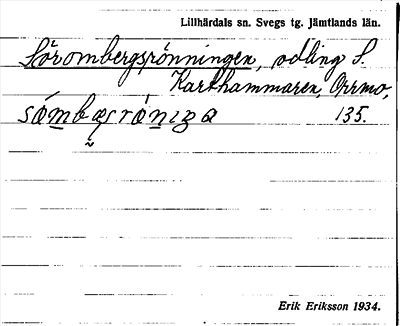 Lillhärdals sn. Svegs tg. Jämtlands län.
Lörombergsrönningen, odling S.
Karlhammaren, Orrmo,
135.
Erik Eriksson 1934.